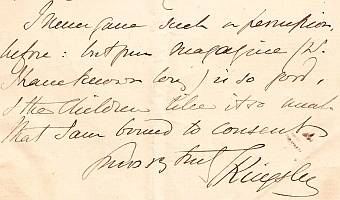 I never gave such a permission
before: but your magazine (wh.
I have known long) is so good,
& the children like it so much
that I am bound to consent
Yours very truly
C Kingsley